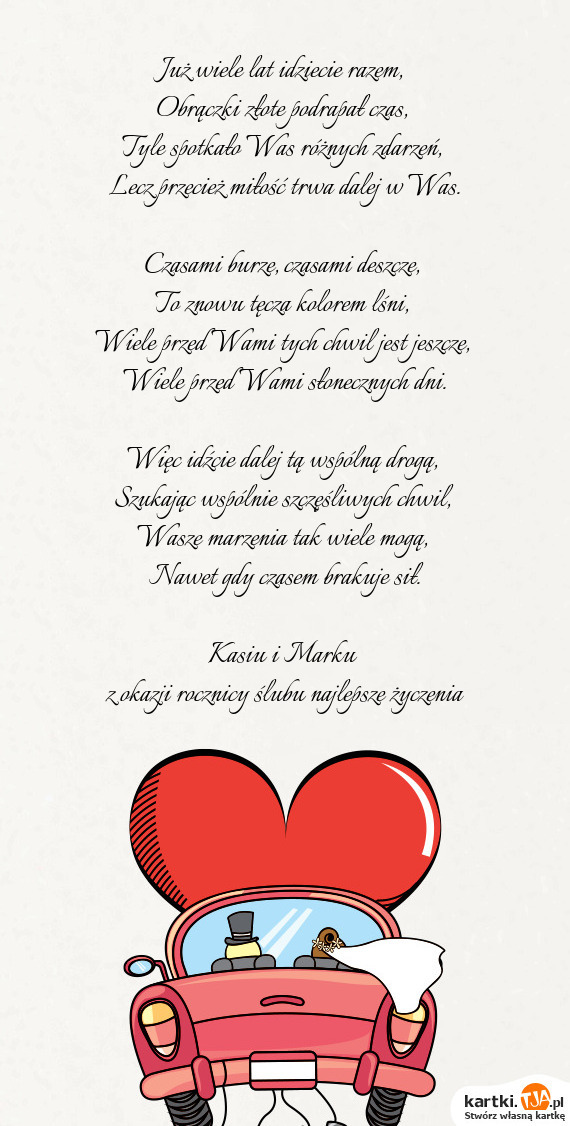 Już wiele lat idziecie razem,
Obrączki złote podrapał czas,
Tyle spotkało Was różnych zdarzeń,
Lecz przecież miłość trwa dalej w Was.
Czasami burze, czasami deszcze,
To znowu tęcza kolorem lśni,
Wiele przed Wami tych chwil jest jeszcze,
Wiele przed Wami słonecznych dni.
Więc idźcie dalej tą wspólną drogą,
Szukając wspólnie szczęśliwych chwil,
Wasze marzenia tak wiele mogą,
Nawet gdy czasem brakuje sił.
Kasiu i Marku
z okazji rocznicy ślubu najlepsze życzenia
kartki.TJA.pl
Stwórz własną kartkę